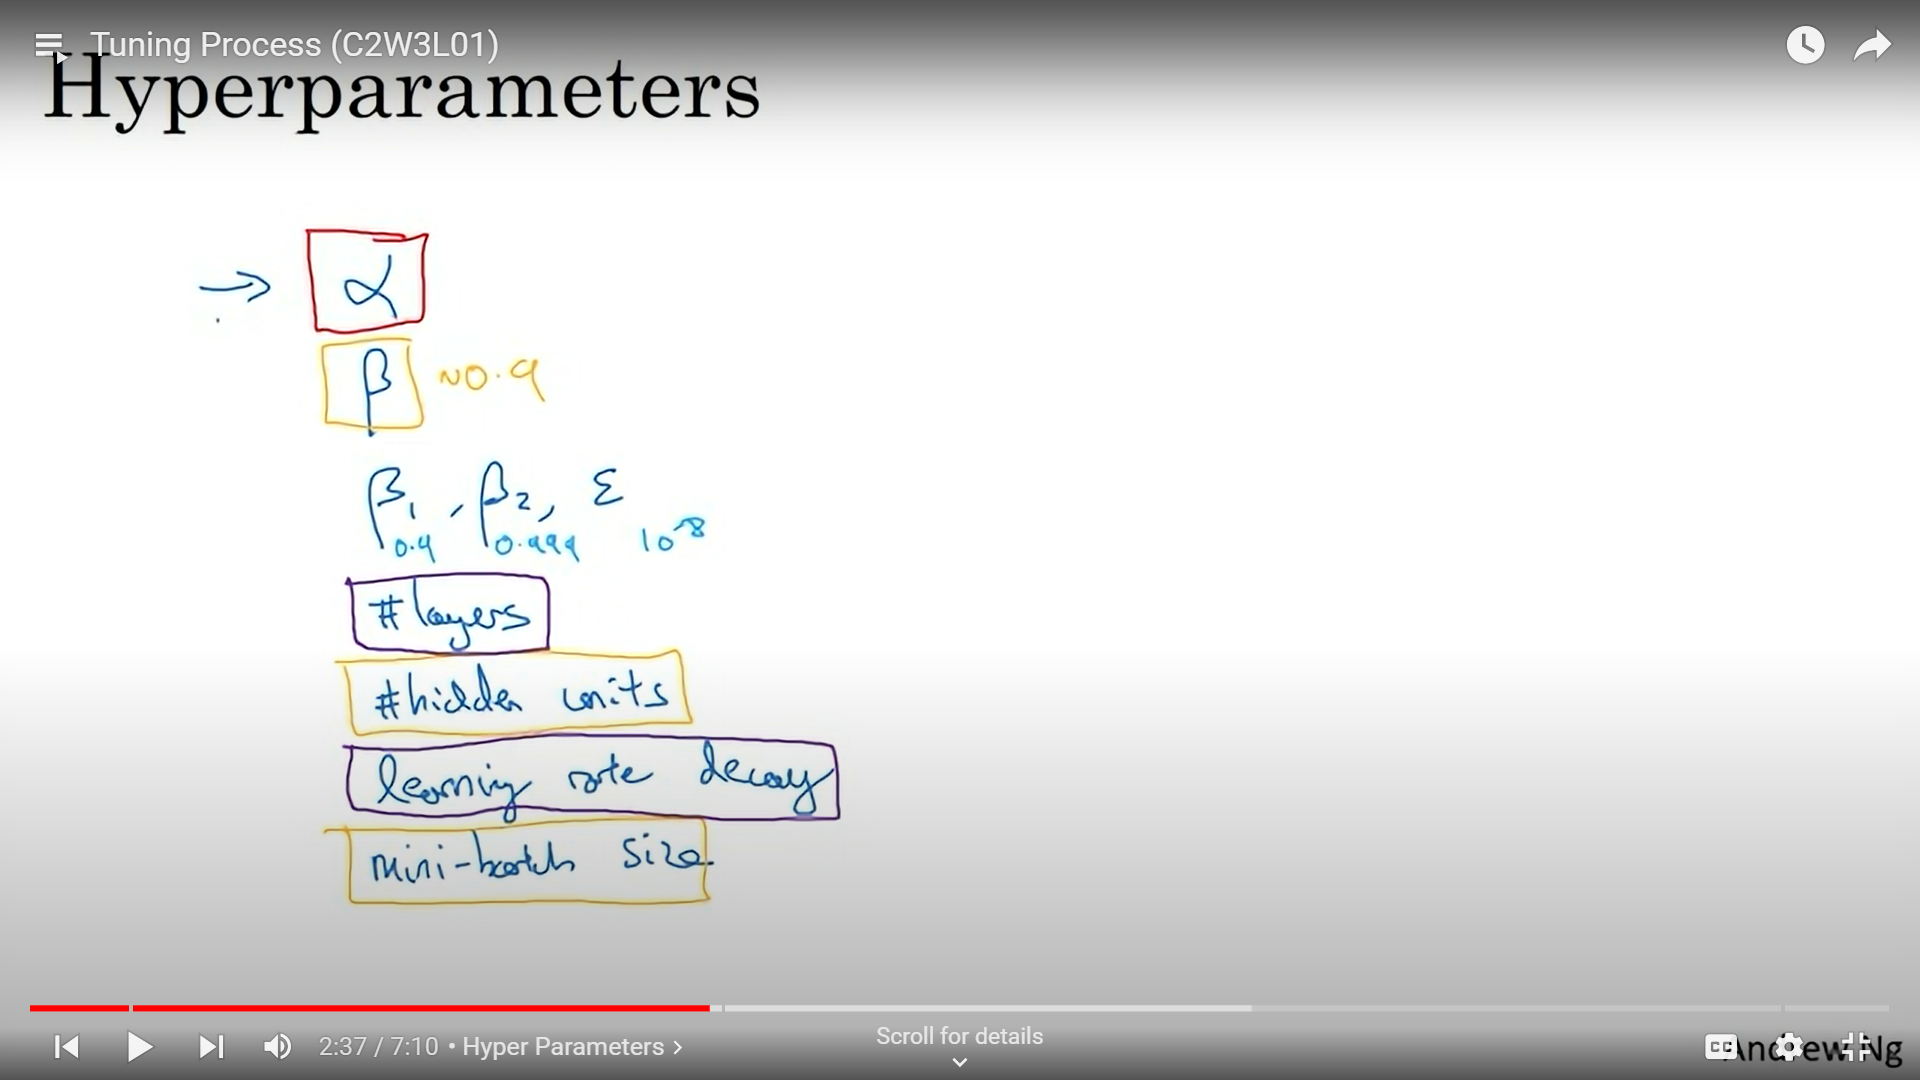 Tuning Process (C2W3L01)
Hyperparameters
α
β ~0.9
β₁, β₂, ε
0.9 0.999 10⁻⁸
#layers
#hidden units
learning rate decay
mini-batch size
2:37 / 7:10 • Hyper Parameters >
Scroll for details
CC
Andrew Ng